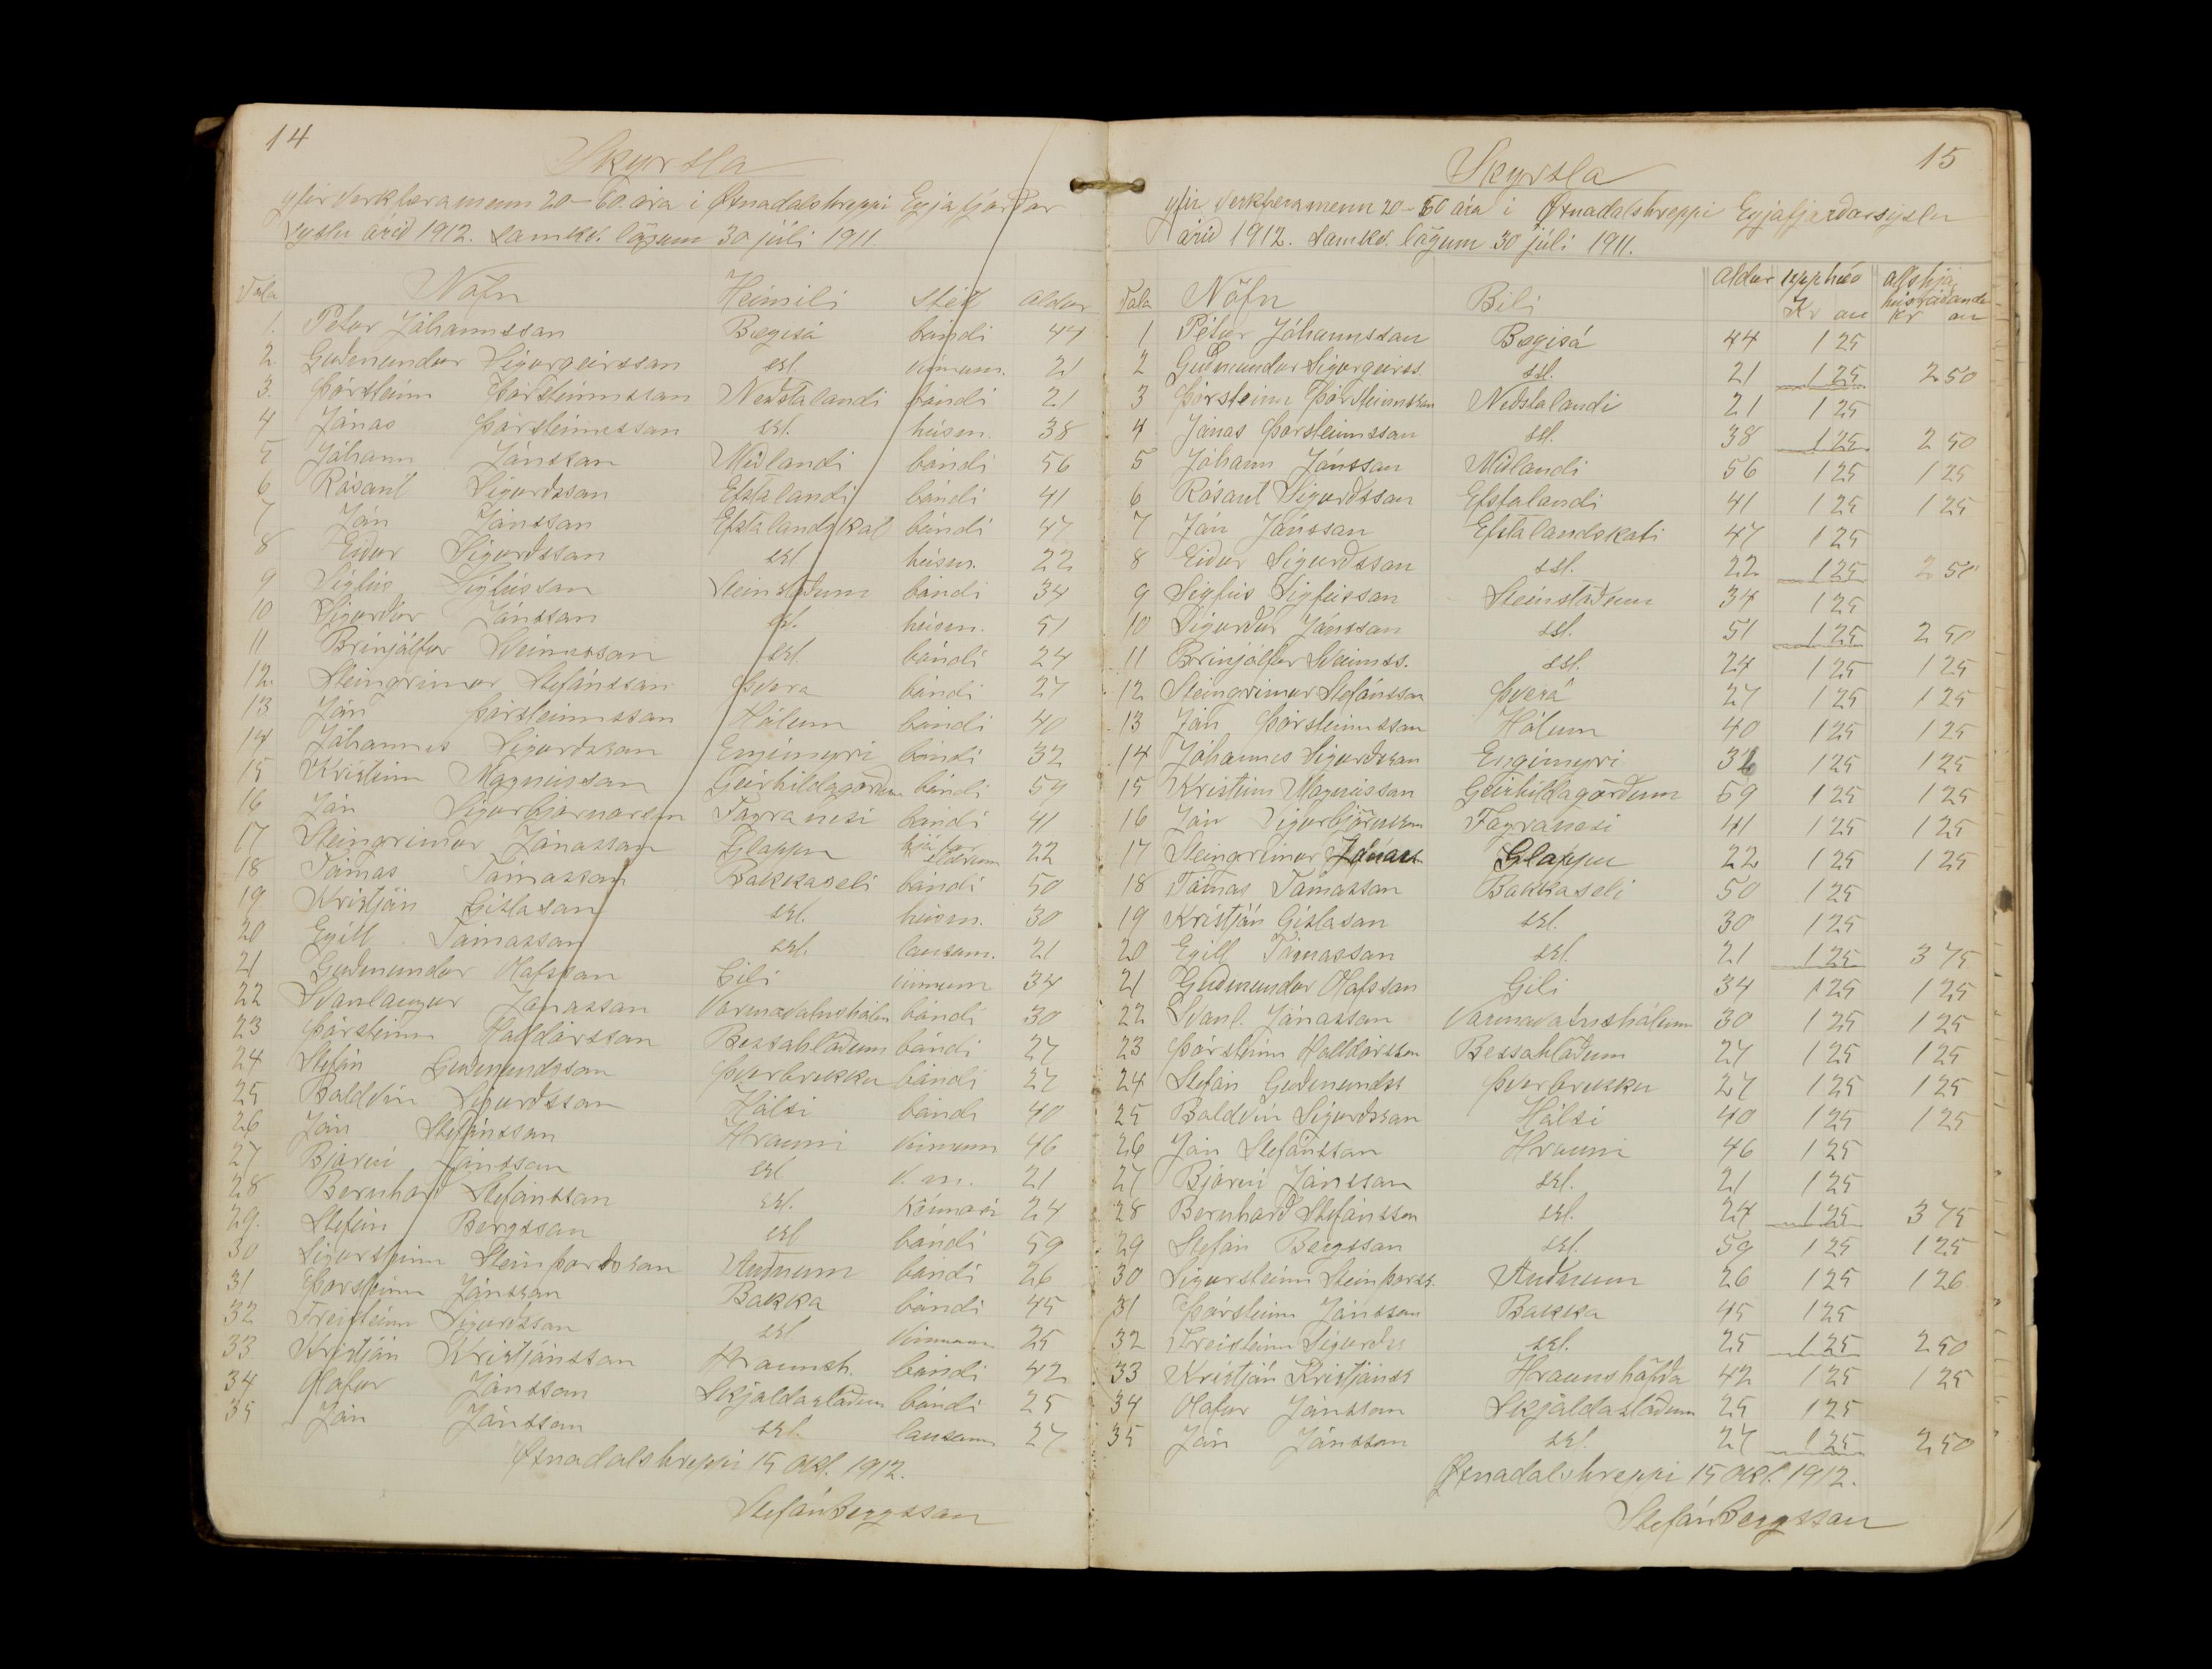 14
Skyrsla
yfir verkfæra menn 20-60. ára i Øxnadalshreppi Eyjafjarðar
syslu árið 1912. samkv. lögum 30 júli 1911.
Tala Nöfn Heimili stétt aldur
1. Petur Jóhannsson Bægisá bóndi 44
2 Guðmundur Sigurgeirsson ssl. vinnum. 21
3. Þórsteinn Þórsteinnsson Neðstalandi bóndi 21
4 Jónas Þórsteinnsson ssl. húsm. 38
5 Jóhann Jónsson Miðlandi bóndi 56
6 Rósant Sigurðsson Efstalandi bóndi 41
7 Jón Jónsson Efstalandskot bóndi 47
8 Eiður Sigurðsson ssl húsm. 22
9 Sigfús Sigfússon Steinstöðum bóndi 34
10 Sigurður Jónsson ssl. húsm. 51
11 Brinjólfur Sveinsson ssl bóndi 24
12. Steingrimur Stefánsson Þvera bóndi 27
13 Jón Þórsteinnsson Hólum bóndi 40
14 Jóhannes Sigurðsson Engimyri bóndi 32
15 Kristinn Magnússon Geirhildagörðum bóndi 59
16 Jón Sigurbjörnarson Fagranesi bóndi 41
17 Steingrimur Jónasson Glappu hjá for eldrum 22
18 Tómas Tómasson Bakkaseli bóndi 50
19 Kristján Gislason ssl. húsm. 30
20 Egill Tómasson ssl. lausam. 21
21 Guðmundur Olafsson Gili vinnum 34
22 Svanlaugur Jónasson Varmavatnshólum bóndi 30
23 Þórsteinn Halldórsson Bessahlöðum bóndi 27
24 Stefán Guðmundsson Þverbrekku bóndi 27
25 Baldvin Sigurðsson Hálsi bóndi 40
26 Jón Stefánsson Hrauni Vinnum 46
27 Bjarni Jónsson ssl V. m. 21
28 Bernharð Stefánsson ssl. Kennari 24
29. Stefán Bergsson ssl bóndi 59
30 Sigursteinn Steinþorsson Auðnum bóndi 26
31 Þorsteinn Jónsson Bakka bóndi 45
32 Freisteinn Sigurðsson ssl Vinnum 25
33 Kristján Kristjánsson Hraunsh. bóndi 42
34 Olafur Jónsson Skjaldastöðum bóndi 25
35 Jón Jónsson ssl. lausam 27
Øxnadalshreppi 15 Okt. 1912.
Stefán Bergsson
15
Skyrsla
yfir verkfæra menn 20-60 ára i Øxnadalshreppi Eyjafjarðarsyslu
árið 1912. samkv. lögum 30 júli 1911.
Tala Nöfn Bili aldur upphæð Kr au alls hjá húsráðanda kr au
1 Pétur Jóhannsson Bægisá 44 1 25
2 Guðmundur Sigurgeirss. ssl. 21 1 25 2 50
3 Þórsteinn Þórsteinnsson Neðstalandi 21 1 25
4 Jónas Þorsteinnsson ssl. 38 1 25 2 50
5 Jóhann Jónsson Miðlandi 56 1 25 1 25
6 Rósant Sigurðsson Efstalandi 41 1 25 1 25
7 Jón Jónsson Efstalandskoti 47 1 25
8 Eiður Sigurðsson ssl. 22 1 25 2 50
9 Sigfús Sigfússon Steinstöðum 34 1 25
10 Sigurður Jónsson ssl. 51 1 25 2 50
11 Brinjólfur Sveinss. ssl. 24 1 25 1 25
12 Steingrimur Stefánsson Þverá 27 1 25 1 25
13 Jón Þórsteinnsson Hólum 40 1 25 1 25
14 Jóhannes Sigurðsson Engimyri 32 1 25 1 25
15 Kristinn Magnússon Geirhildagörðum 59 1 25 1 25
16 Jón Sigurbjörnsson Fagranesi 41 1 25 1 25
17 Steingrimur Jónass Glappu 22 1 25 1 25
18 Tómas Tómasson Bakkaseli 50 1 25
19 Kristján Gislasan ssl. 30 1 25
20 Egill Tómasson ssl. 21 1 25 3 75
21 Guðmundur Olafsson Gili 34 1 25 1 25
22 Svanl. Jónasson Varmavatnshólum 30 1 25 1 25
23 Þórsteinn Halldórsson Bessahlöðum 27 1 25 1 25
24 Stefán Guðmundss Þverbrekku 27 1 25 1 25
25 Baldvin Sigurðsson Hálsi 40 1 25 1 25
26 Jón Stefánsson Hrauni 46 1 25
27 Bjarni Jónsson ssl. 21 1 25
28 Bernharð Stefánsson ssl. 24 1 25 3 75
29 Stefán Bergsson ssl. 59 1 25 1 25
30 Sigursteinn Steinþorss. Auðnum 26 1 25 1 26
31 Þórsteinn Jónsson Bakka 45 1 25
32 Freisteinn Sigurðss ssl. 25 1 25 2 50
33 Kristján Kristjánss Hraunshöfða 42 1 25 1 25
34 Olafur Jónsson Skjaldastöðum 25 1 25
35 Jón Jónsson ssl. 27 1 25 2 50
Øxnadalshreppi 15 Okt. 1912.
Stefán Bergsson